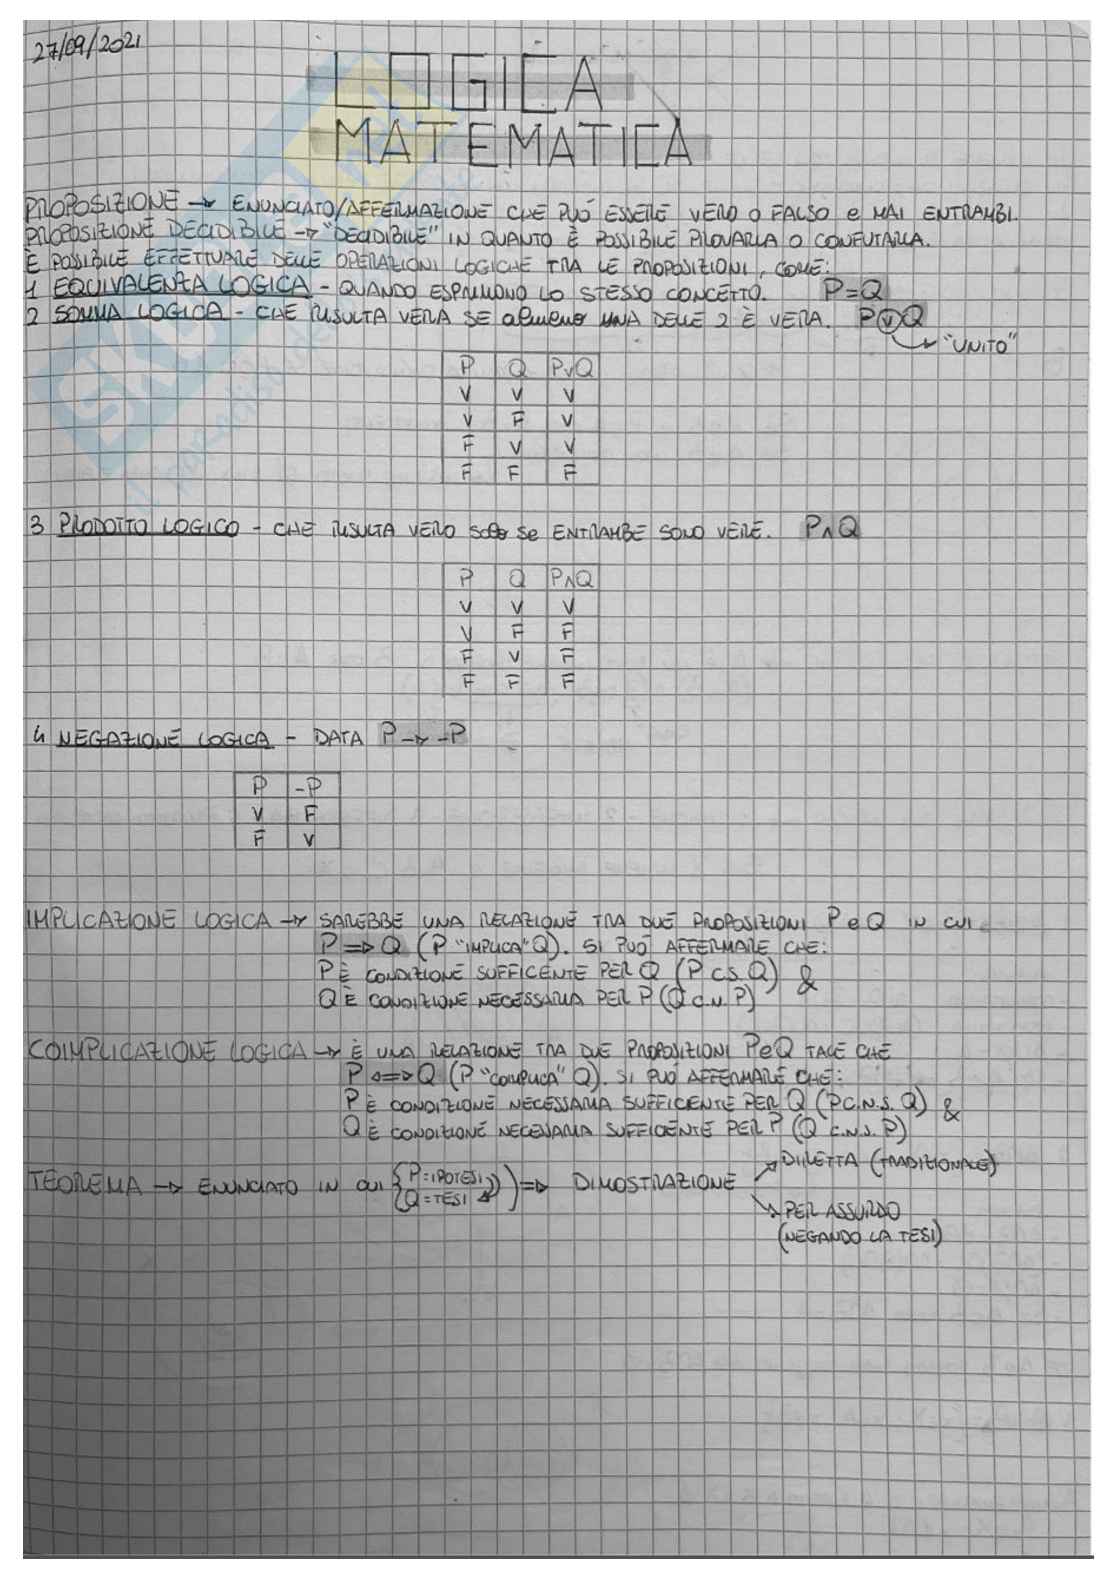 27/09/2021
LOGICA
MATEMATICA
PROPOSIZIONE → ENUNCIATO/AFFERMAZIONE CHE PUÓ ESSERE VERO O FALSO e MAI ENTRAMBI.
PROPOSIZIONE DECIDIBILE → "DECIDIBILE" IN QUANTO È POSSIBILE PROVARLA O CONFUTARLA.
È POSSIBILE EFFETTUARE DELLE OPERAZIONI LOGICHE TRA LE PROPOSIZIONI, COME:
1 EQUIVALENZA LOGICA - QUANDO ESPRIMONO LO STESSO CONCETTO. P=Q
2 SOMMA LOGICA - CHE RISULTA VERA SE almeno UNA DELLE 2 È VERA. P∨Q
→ "UNITO"
P Q P∨Q
V V V
V F V
F V V
F F F
3 PRODOTTO LOGICO - CHE RISULTA VERO solo se ENTRAMBE SONO VERE. P∧Q
P Q P∧Q
V V V
V F F
F V F
F F F
4 NEGAZIONE LOGICA - DATA P → -P
P -P
V F
F V
IMPLICAZIONE LOGICA → SAREBBE UNA RELAZIONE TRA DUE PROPOSIZIONI P e Q IN CUI
P ⇒ Q (P "IMPLICA" Q). SI PUÓ AFFERMARE CHE:
P È CONDIZIONE SUFFICENTE PER Q (P C.S. Q) &
Q È CONDIZIONE NECESSARIA PER P (Q C.N. P)
COIMPLICAZIONE LOGICA → È UNA RELAZIONE TRA DUE PROPOSIZIONI P e Q TALE CHE
P ⇔ Q (P "COIMPLICA" Q). SI PUÓ AFFERMARE CHE:
P È CONDIZIONE NECESSARIA SUFFICENTE PER Q (P C.N.S. Q) &
Q È CONDIZIONE NECESSARIA SUFFICENTE PER P (Q C.N.S. P)
TEOREMA → ENUNCIATO IN CUI {P=IPOTESI Q=TESI}) ⇒ DIMOSTRAZIONE
DIRETTA (TRADIZIONALE)
PER ASSURDO
(NEGANDO LA TESI)